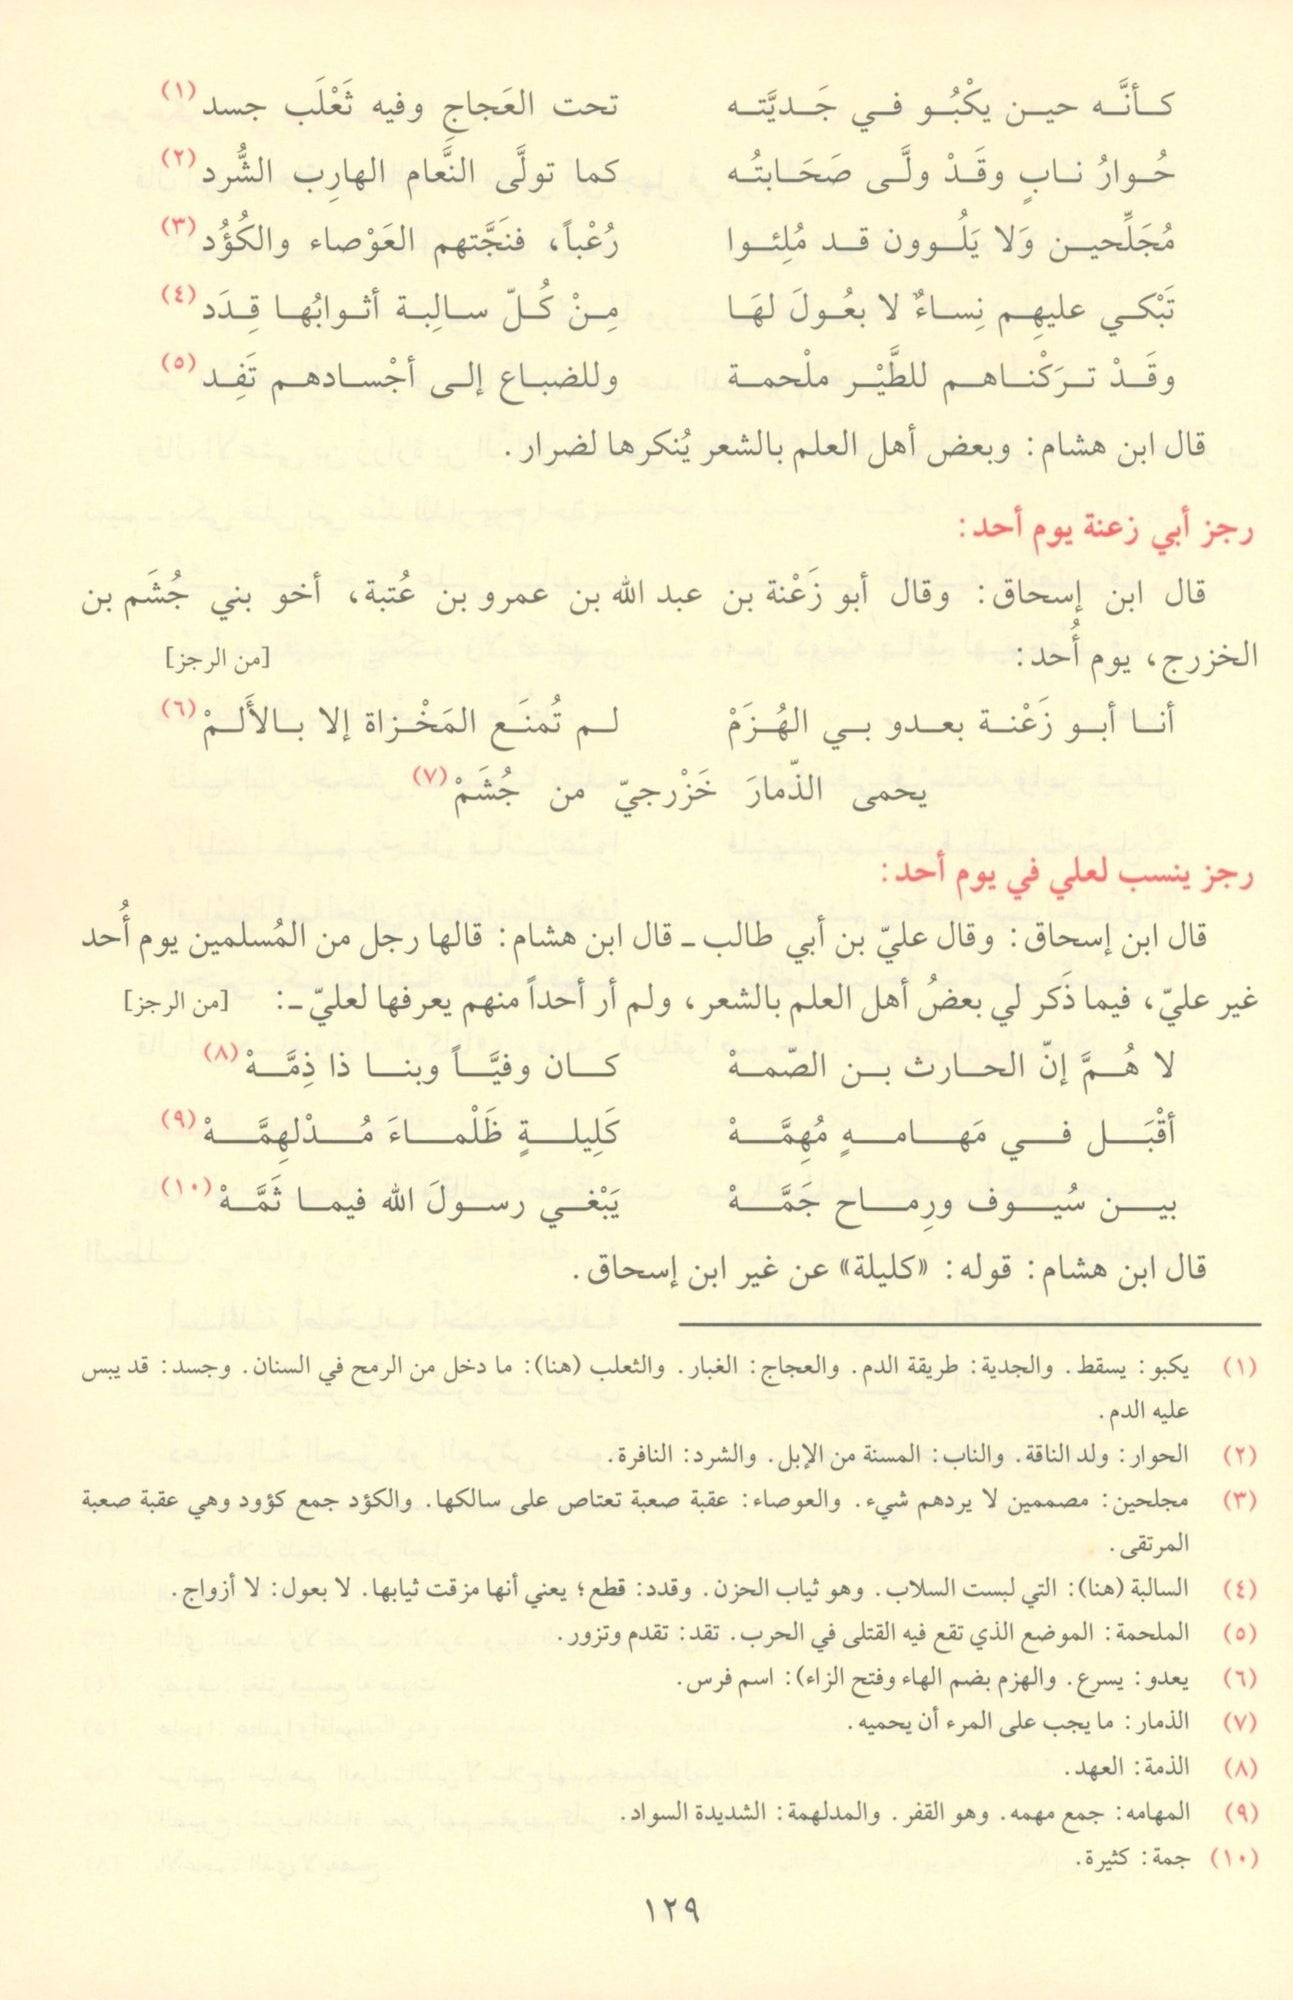 كأنَّه حين يكْبُو في جَديَّته تحت العَجاجِ وفيه ثَعْلَب جسد(١)
حُوارُ نابٍ وقَدْ ولَّى صَحَابتُه كما تولَّى النَّعام الهارِب الشُّرد(٢)
مُجَلِّحين وَلا يَلُوون قد مُلِئوا رُعْباً، فنَجَّتهم العَوْصاء والكُؤُد(٣)
تَبْكي عليهِم نِساءٌ لا بعُولَ لهَا مِنْ كُلّ سالِبة أثوابُها قِدَد(٤)
وقَدْ تركْناهم للطَّيْر ملْحمة وللضباع إلى أجْسادهم تَفِد(٥)
قال ابن هشام: وبعض أهل العلم بالشعر يُنكرها لضرار.
رجز أبي زعنة يوم أحد:
قال ابن إسحاق: وقال أبو زَعْنة بن عبد الله بن عمرو بن عُتبة، أخو بني جُشَم بن
الخزرج، يوم أُحد: [من الرجز]
أنا أبو زَعْنة بعدو بي الهُزَمْ لم تُمنَع المَخْزاة إلا بالأَلمْ(٦)
يحمى الذّمارَ خَزْرجيّ من جُشَمْ(٧)
رجز ينسب لعلي في يوم أحد:
قال ابن إسحاق: وقال عليّ بن أبي طالب ـ قال ابن هشام: قالها رجل من المُسلمين يوم أُحد
غير عليّ، فيما ذَكر لي بعضُ أهل العلم بالشعر، ولم أر أحداً منهم يعرفها لعليّ ـ: [من الرجز]
لا هُمَّ إنّ الحارث بن الصّمهْ كان وفيَّاً وبنا ذا ذِمَّهْ(٨)
أقْبَل في مَهامهٍ مُهِمَّهْ كَلِيلةٍ ظَلْماءَ مُدْلهِمَّهْ(٩)
بين سُيوف ورِماح جَمَّهْ يَبْغي رسولَ الله فيما ثَمَّهْ(١٠)
قال ابن هشام: قوله: «كليلة» عن غير ابن إسحاق.
(١) يكبو: يسقط. والجدية: طريقة الدم. والعجاج: الغبار. والثعلب (هنا): ما دخل من الرمح في السنان. وجسد: قد يبس
عليه الدم.
(٢) الحوار: ولد الناقة. والناب: المسنة من الإبل. والشرد: النافرة.
(٣) مجلحين: مصممين لا يردهم شيء. والعوصاء: عقبة صعبة تعتاص على سالكها. والكؤد جمع كؤود وهي عقبة صعبة
المرتقى.
(٤) السالبة (هنا): التي لبست السلاب. وهو ثياب الحزن. وقدد: قطع؛ يعني أنها مزقت ثيابها. لا بعول: لا أزواج.
(٥) الملحمة: الموضع الذي تقع فيه القتلى في الحرب. تقد: تقدم وتزور.
(٦) يعدو: يسرع. والهزم بضم الهاء وفتح الزاء): اسم فرس.
(٧) الذمار: ما يجب على المرء أن يحميه.
(٨) الذمة: العهد.
(٩) المهامه: جمع مهمه. وهو القفر. والمدلهمة: الشديدة السواد.
(١٠) جمة: كثيرة.
١٢٩